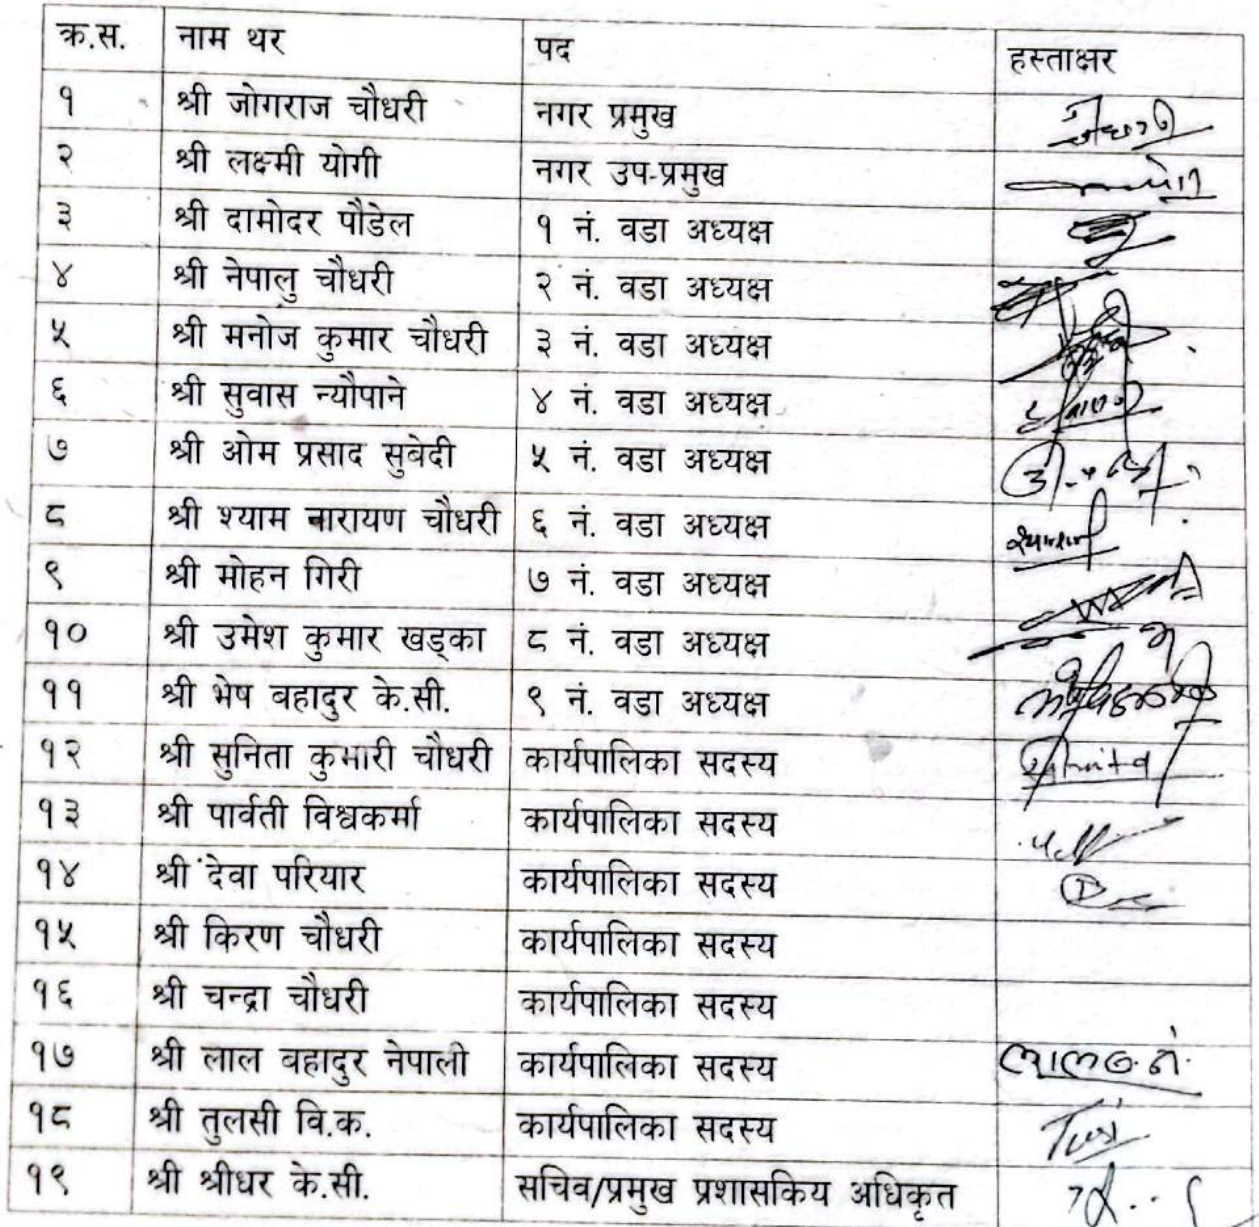 क्र.स. नाम थर पद हस्ताक्षर
१ श्री जोगराज चौधरी नगर प्रमुख
२ श्री लक्ष्मी योगी नगर उप-प्रमुख
३ श्री दामोदर पौडेल १ नं. वडा अध्यक्ष
४ श्री नेपालु चौधरी २ नं. वडा अध्यक्ष
५ श्री मनोज कुमार चौधरी ३ नं. वडा अध्यक्ष
६ श्री सुवास न्यौपाने ४ नं. वडा अध्यक्ष
७ श्री ओम प्रसाद सुबेदी ५ नं. वडा अध्यक्ष
८ श्री श्याम नारायण चौधरी ६ नं. वडा अध्यक्ष
९ श्री मोहन गिरी ७ नं. वडा अध्यक्ष
१० श्री उमेश कुमार खड्का ८ नं. वडा अध्यक्ष
११ श्री भेष वहादुर के.सी. ९ नं. वडा अध्यक्ष
१२ श्री सुनिता कुमारी चौधरी कार्यपालिका सदस्य
१३ श्री पार्वती विश्वकर्मा कार्यपालिका सदस्य
१४ श्री देवा परियार कार्यपालिका सदस्य
१५ श्री किरण चौधरी कार्यपालिका सदस्य
१६ श्री चन्द्रा चौधरी कार्यपालिका सदस्य
१७ श्री लाल वहादुर नेपाली कार्यपालिका सदस्य
१८ श्री तुलसी वि.क. कार्यपालिका सदस्य
१९ श्री श्रीधर के.सी. सचिव/प्रमुख प्रशासकिय अधिकृत